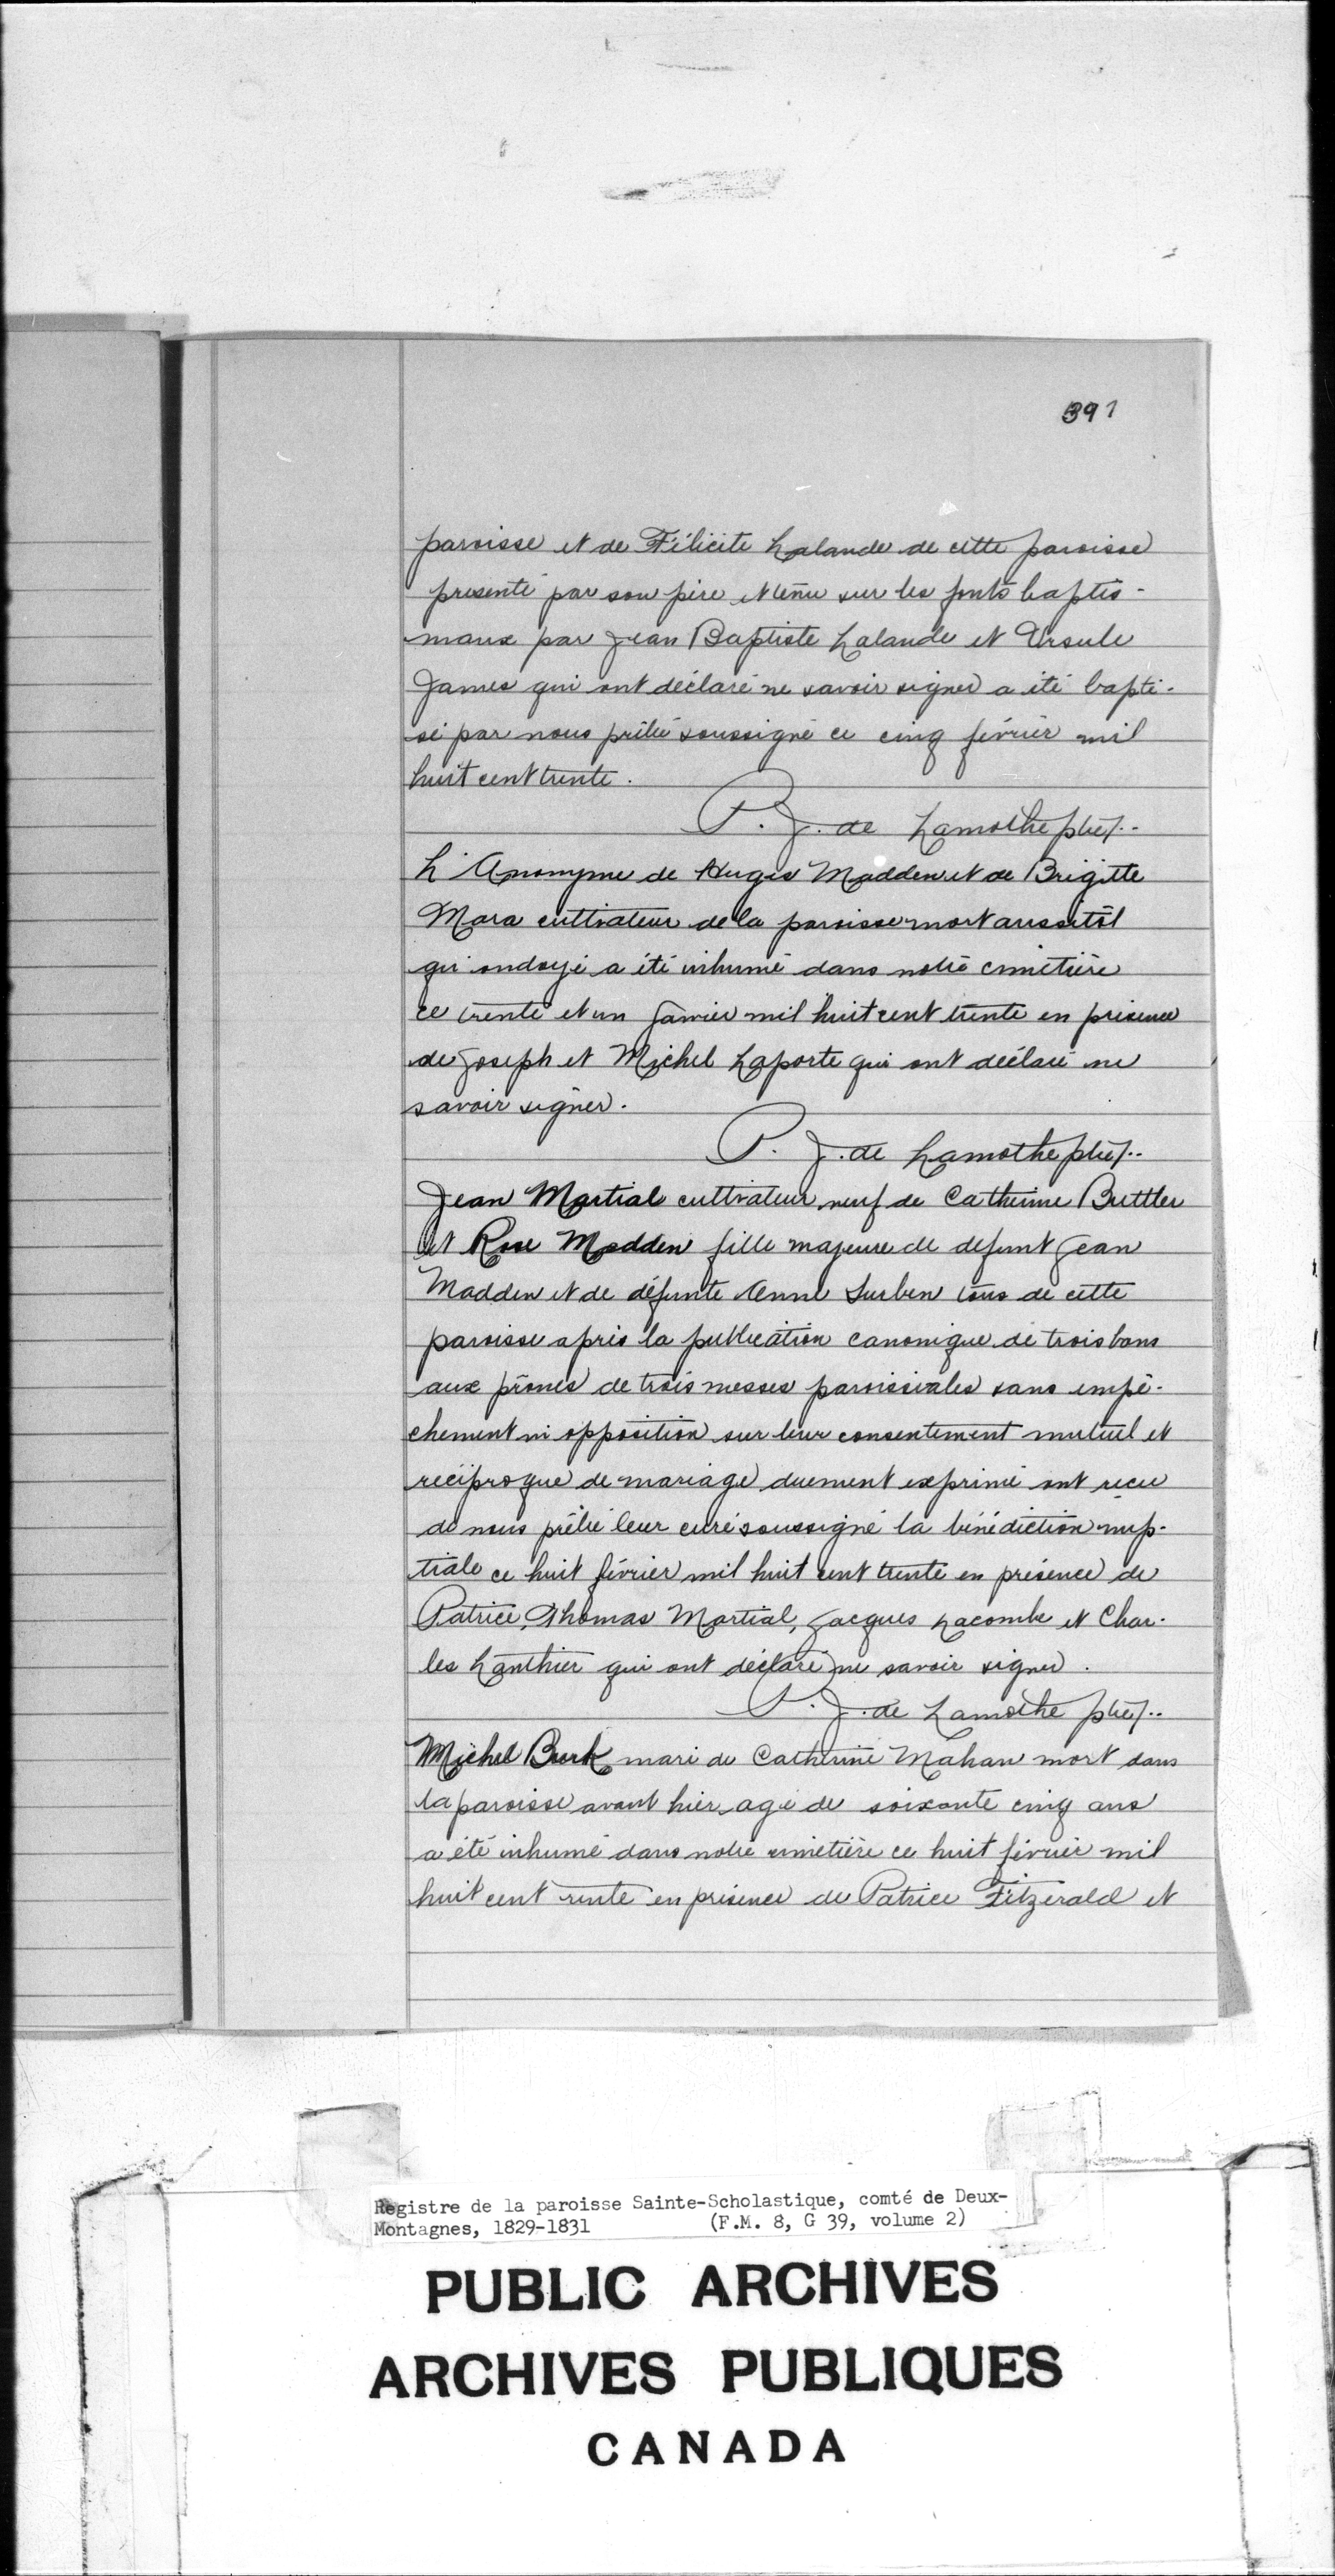 391
paroisse et de Félicite Lalande de cette paroisse
presenté par son père et tenu sur les fonts baptis-
maux par Jean Baptiste Lalande et Ursule
James qui ont déclaré ne savoir signer a été bapti-
sé par nous prêtre soussigné ce cinq février mil
huit cent trente.
P. J. de Lamothe ptre/..
L'Anonyme de Huges Madden et de Brigitte
Mara cultivateur de la paroisse mort aussitôt
qu'ondoyé a été inhumé dans notre cimetière
ce trente et un Janvier mil huit cent trente en présence
de Joseph et Michel Laporte qui ont déclaré ne
savoir signer.
P. J. de Lamothe ptre/..
Jean Martial cultivateur veuf de Catherine Buttler
et Rose Madden fille majeure de defunt Jean
Madden et de défunte Anne Surben tous de cette
paroisse après la publication canonique de trois bans
aux prônes de trois messes paroissiales sans empê-
chement ni opposition sur leur consentement mutuel et
réciproque de mariage duement exprimé ont recu
de nous prêtre leur curé soussigné la bénédiction nup-
tiale ce huit février mil huit cent trente en présence de
Patrice, Thomas Martial, Jacques Lacombe et Char-
les Lanthier qui ont déclaré ne savoir signer.
P. J. de Lamothe ptre/..
Michel Burk mari de Catherine Mahan mort dans
la paroisse avant hier agé de soixante cinq ans
a été inhumé dans notre cimetière ce huit février mil
huit cent trente en présence de Patrice Fitzerald et
Registre de la paroisse Sainte-Scholastique, comté de Deux-
Montagnes, 1829-1831 (F.M. 8, G 39, volume 2)
PUBLIC ARCHIVES
ARCHIVES PUBLIQUES
CANADA